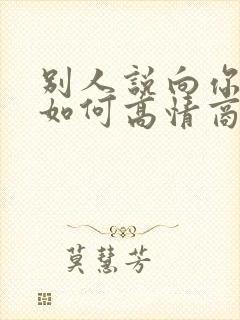 别人説向你
如何高情商
莫慧芳